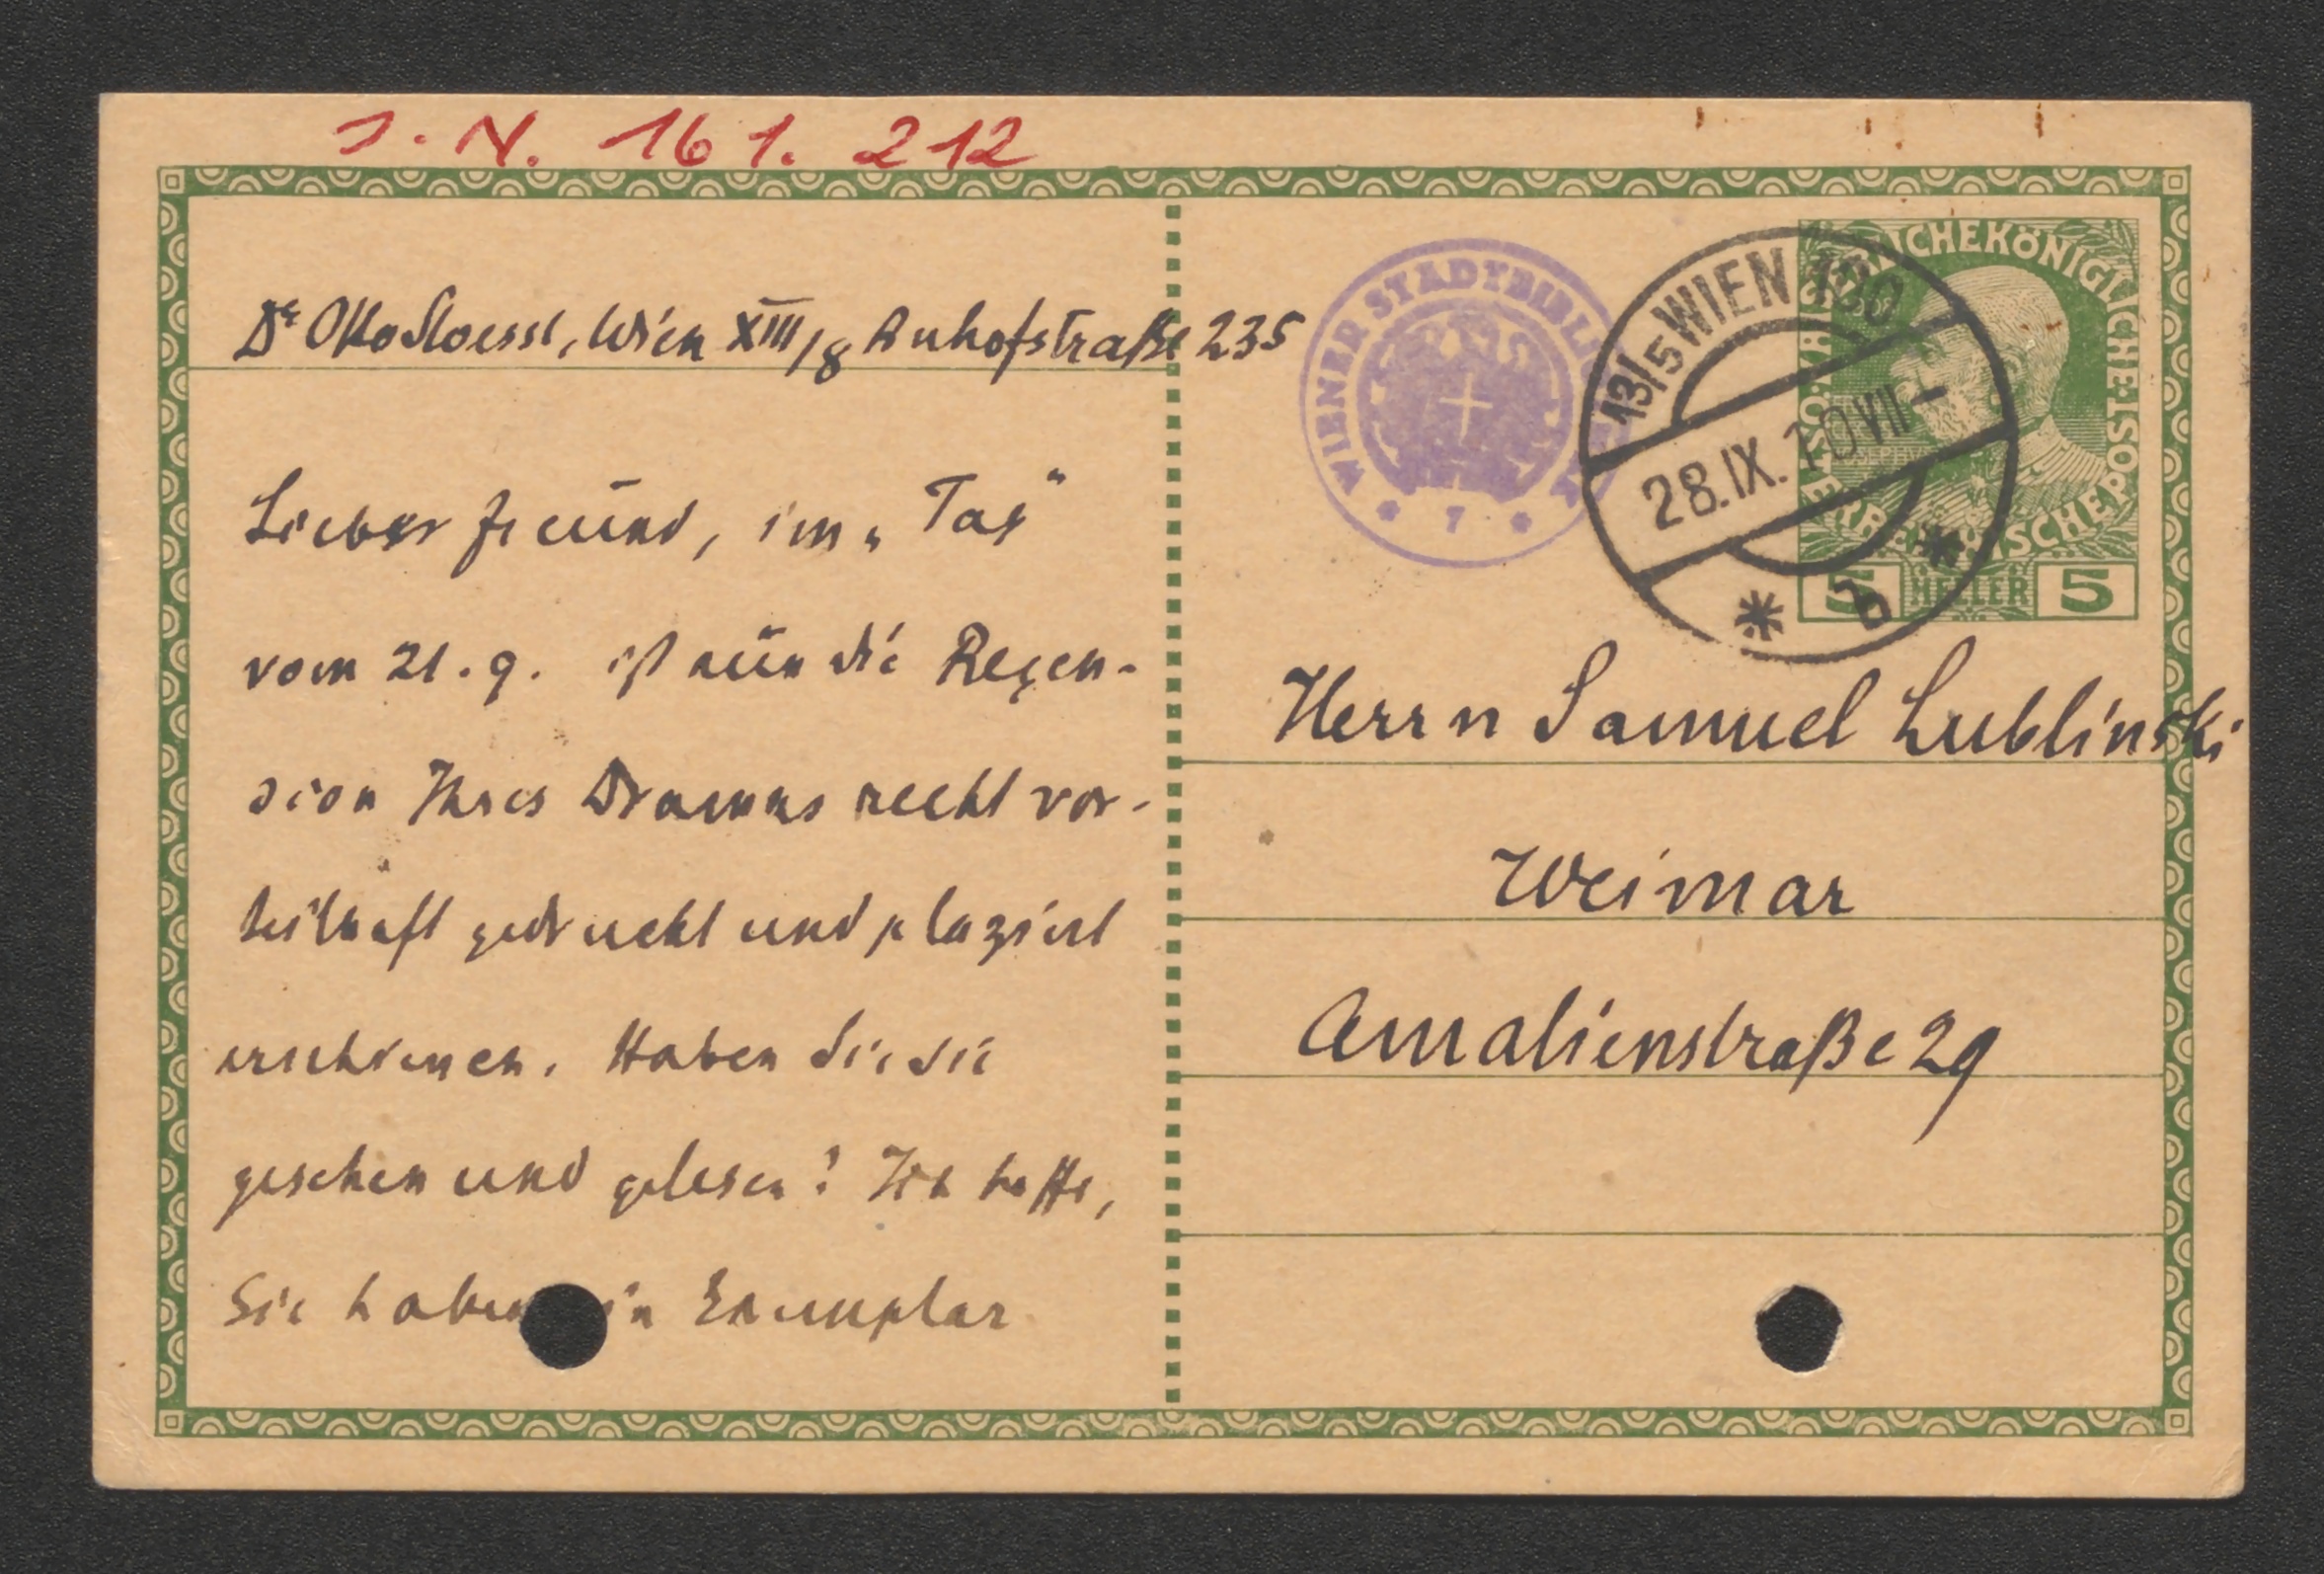 J. N. 161. 212
Dr Otto Stoessl, Wien XIII/8 Auhofstraße 235
Lieber Freund, im „Tag“
vom 21.9. ist nun die Rezen-
sion Ihres Dramas recht vor-
teilhaft gedruckt und plaziert
erschienen. Haben Sie sie
gesehen und gelesen? Ich hoffe,
Sie haben ein Exemplar
WIENER STADTBIBLIO
* 7 *
13/5 WIEN 130
28.IX.10 VII–
* b *
KAISERLICHEKÖNIGLICHE POST
ÖSTERREICHISCHE
5 HELLER 5
Herrn Samuel Lublinski
Weimar
Amalienstraße 29